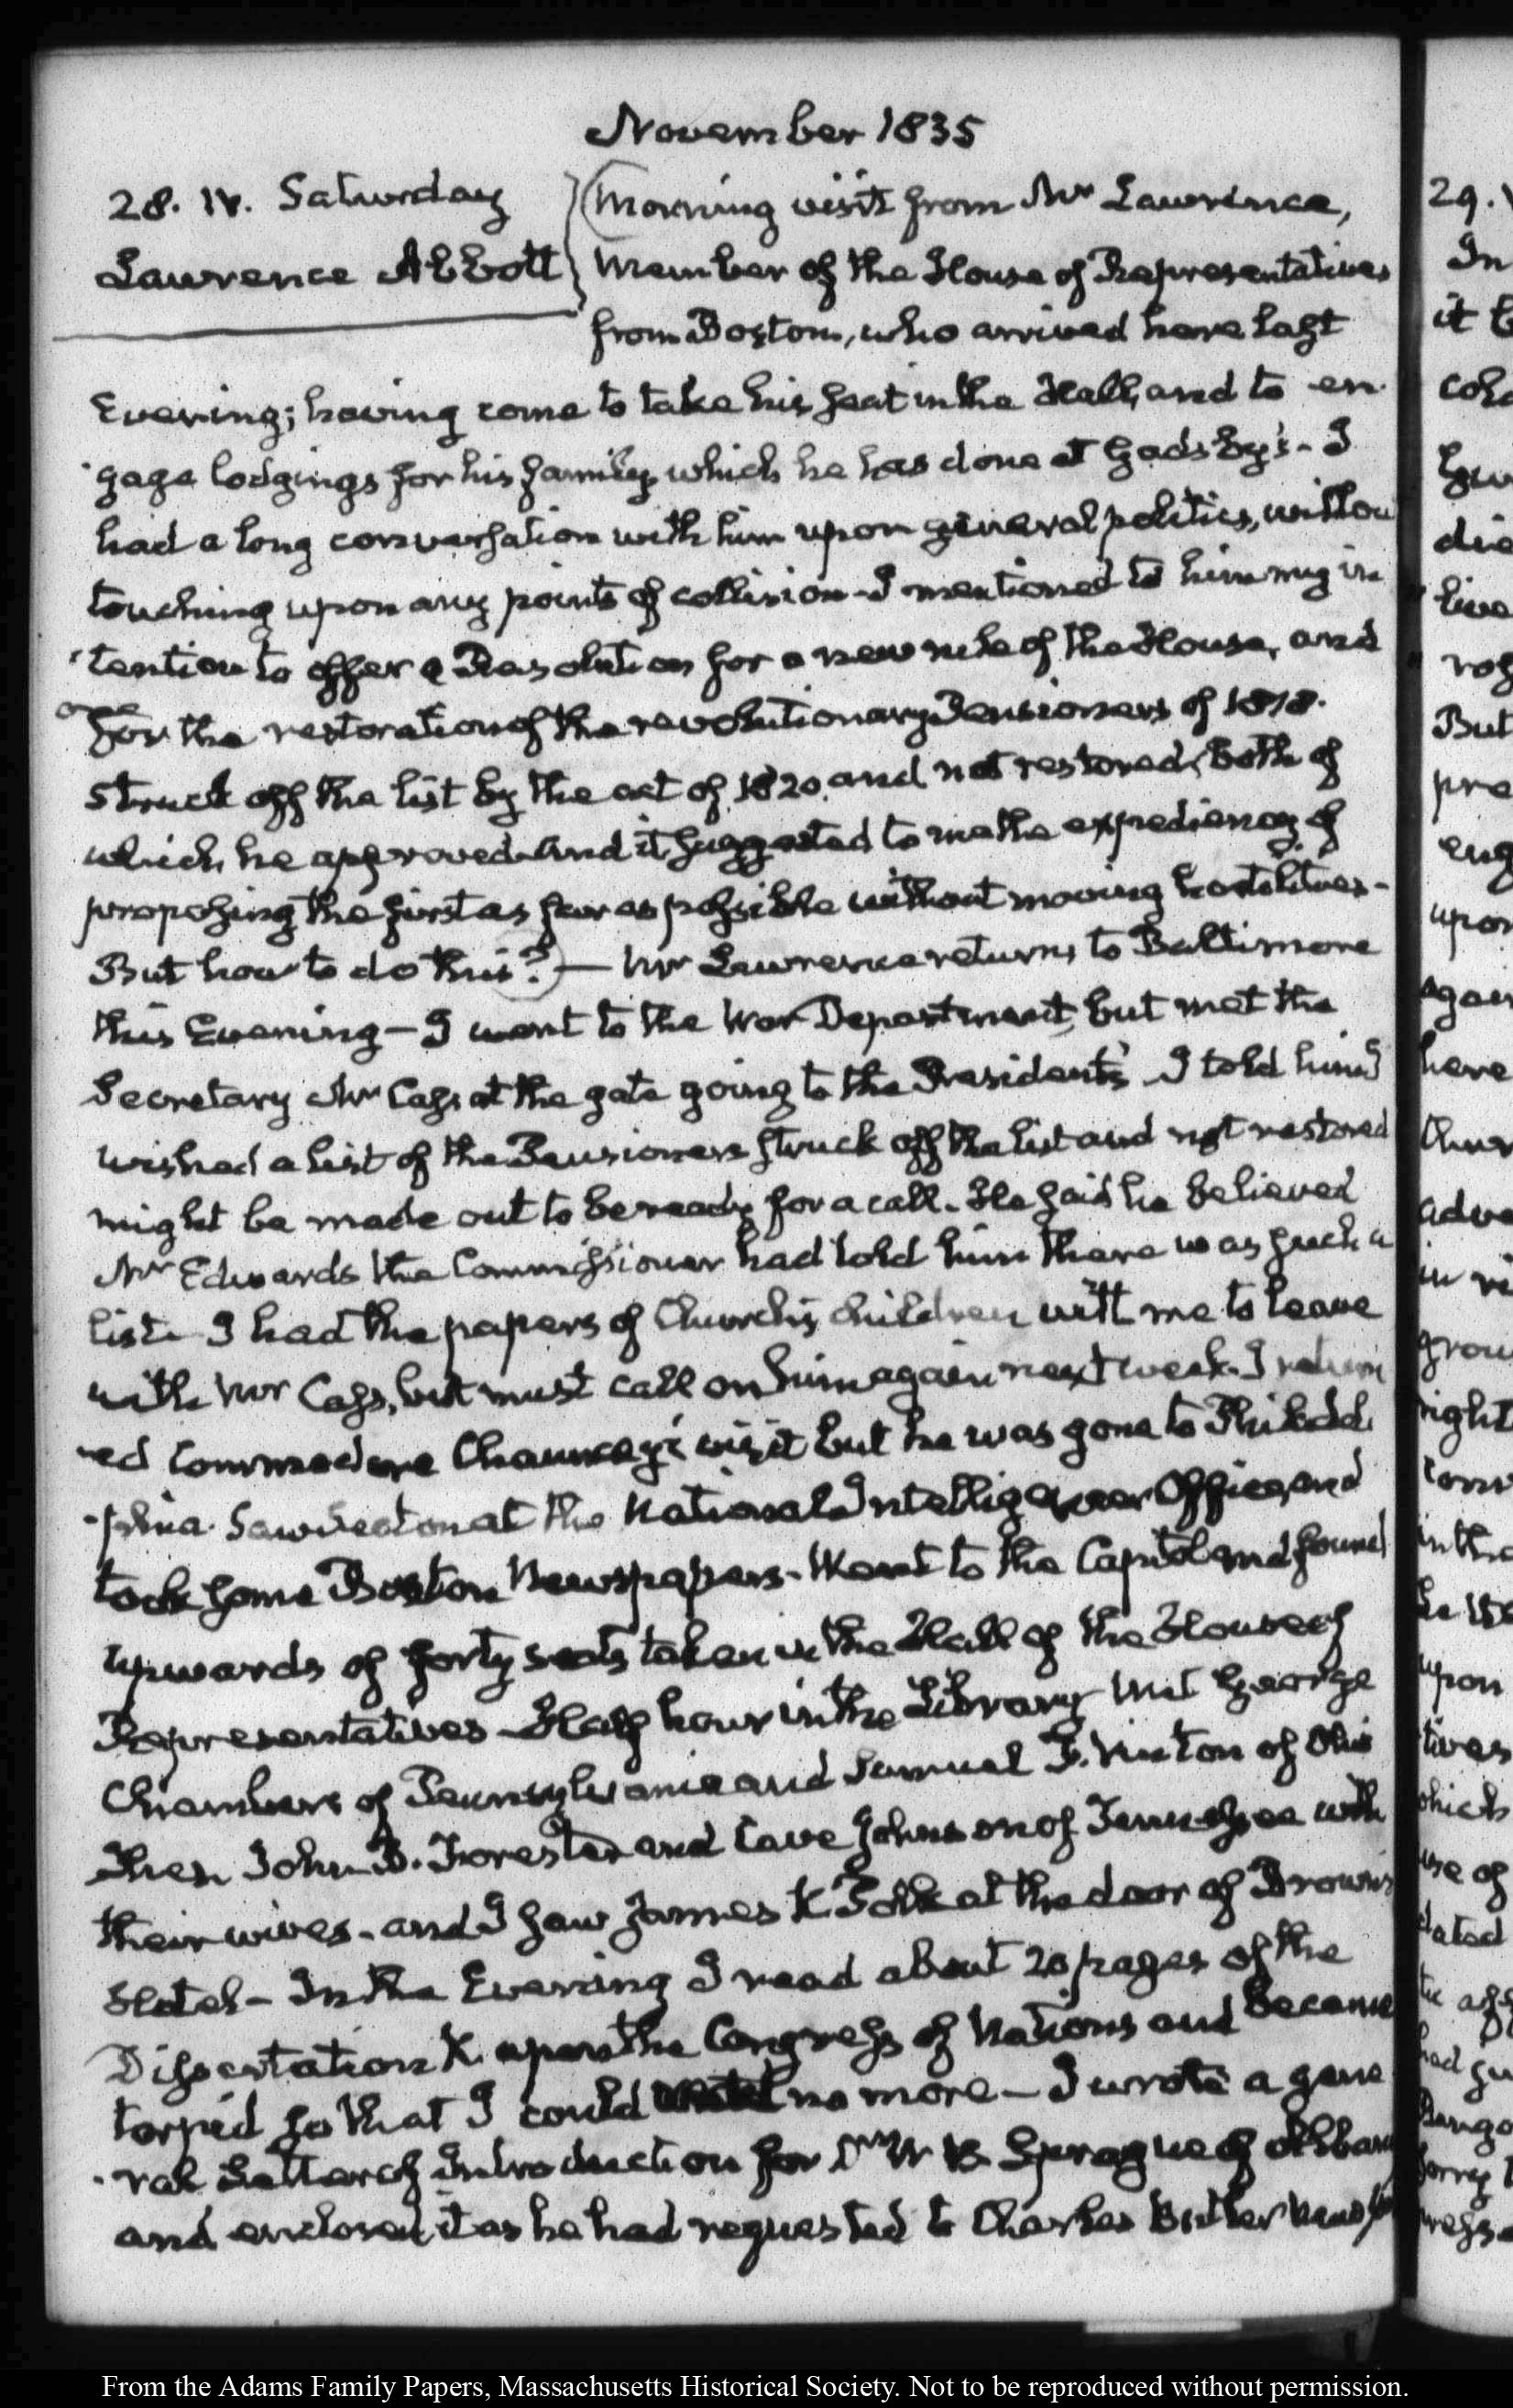 November 1835
28. IV. Saturday
Lawrence Abbott
Morning visit from Mr Lawrence,
Member of the House of Representatives
from Boston, who arrived here last
Evening; having come to take his seat in the Hall, and to en-
gage lodgings for his family, which he has done at Gadsby's - I
had a long conversation with him upon general politics, without
touching upon any points of collision - I mentioned to him my in
tention to offer a Resolution for a new rule of the House, and
one
for the restoration of the revolutionary Pensioners of 1818.
struck off the list by the act of 1820. and not restored, both of
which he approved. And it suggested to me the expediency of
proposing the first as far as possible without moving hostilities -
But how to do this? — Mr Lawrence returns to Baltimore
this Evening - I went to the War Department, but met the
Secretary Mr Cass at the gate going to the President's. I told him I
wished a list of the Pensioners struck off the list and not restored
might be made out to be ready for a call. He said he believed
Mr Edwards the Commissioner had told him there was such a
list. I had the papers of Church's children with me to leave
with Mr Cass, but must call on him again next week. I return
-ed Commodore Chauncey's visit but he was gone to Philadel
-phia. Saw Seaton at the National Intelligencer Office, and
took some Boston Newspapers - Went to the Capitol and found
upwards of forty seats taken in the Hall of the House of
Representatives - Half hour in the Library - Met George
Chambers of Pennsylvania and Samuel F. Vinton of Ohio
Then John B. Forester and Cave Johnson of Tennessee with
their wives - and I saw James K Polk at the door of Brown's
Hotel - In the Evening I read about 20 pages of the
Dissertation K. upon the Congress of Nations and became
torpid so that I could no more - I wrote a gene
-ral Letter of Introduction for Dr W B Sprague of Albany
and enclosed it as he had requested to Charles Butler
29.
In
it
upon
here
in
right
in the
upon
tives
which
of
From the Adams Family Papers, Massachusetts Historical Society. Not to be reproduced without permission.